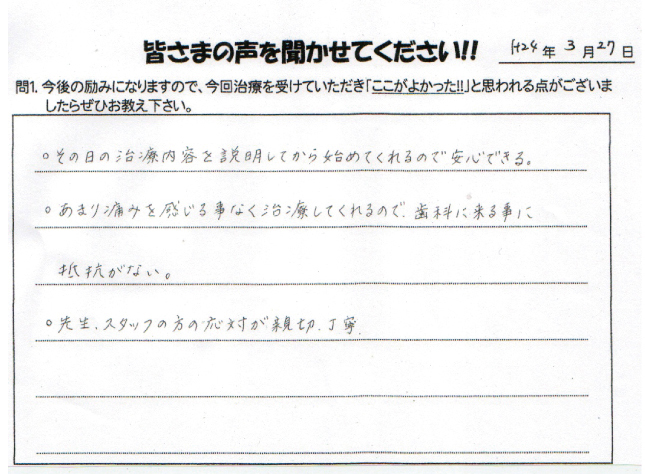 皆さまの声を聞かせてください!! H24年3月27日
問1. 今後の励みになりますので、今回治療を受けていただき「ここがよかった!!」と思われる点がございま
したらぜひお教え下さい。
○その日の治療内容を説明してから始めてくれるので安心できる。
○あまり痛みを感じる事なく治療してくれるので、歯科に来る事に
抵抗がない。
○先生、スタッフの方の応対が親切、丁寧。